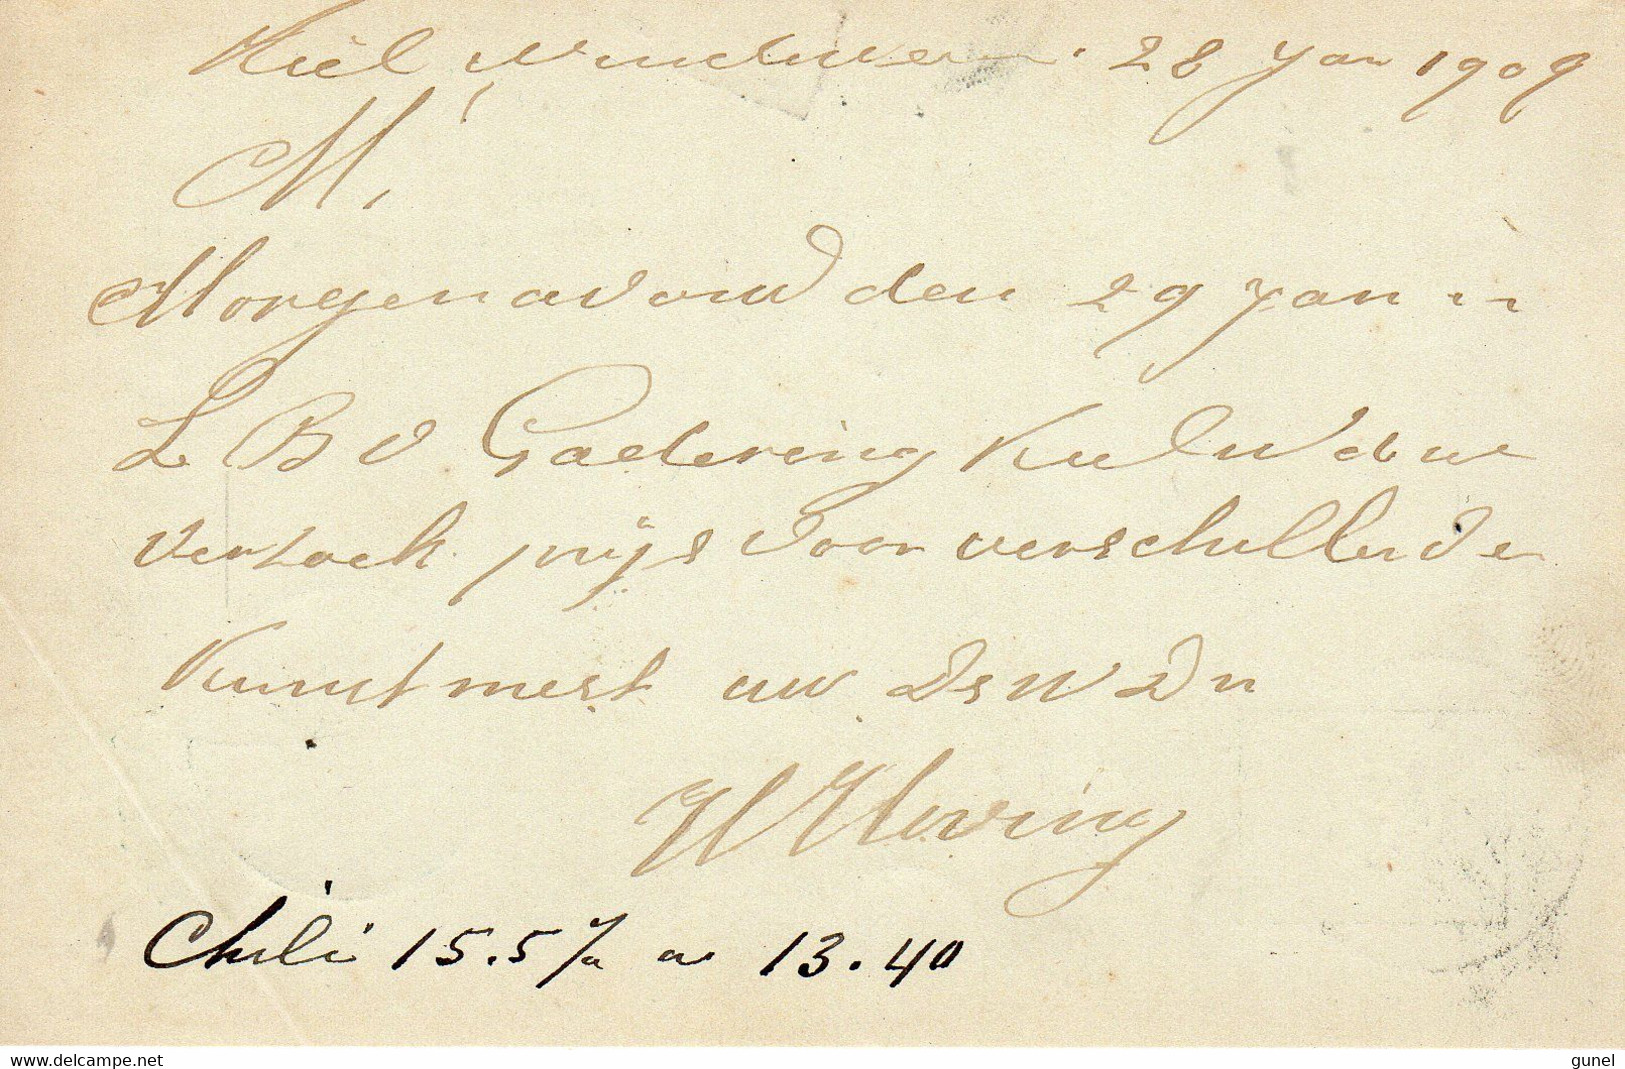 Kiel Windeweer. 28 Jan 1909
M,
Morgenavond den 29 Jan is
L B V Gadering Kiel Wdeweer
verzoek prijs voor verschillende
Kunstmest uw Ds W Dn
Chili 15.5% a 13.40
www.delcampe.net
gunel